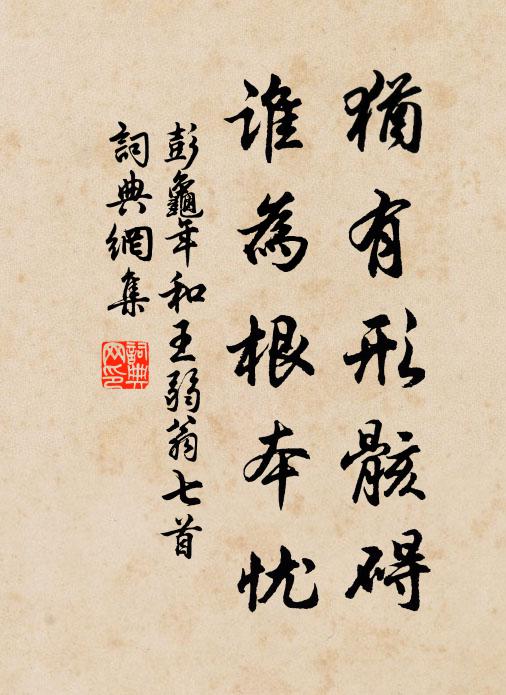 猶有形骸碍
谁為根本忧
彭龜年和王弱翁七首
詞典網集
詞典網印